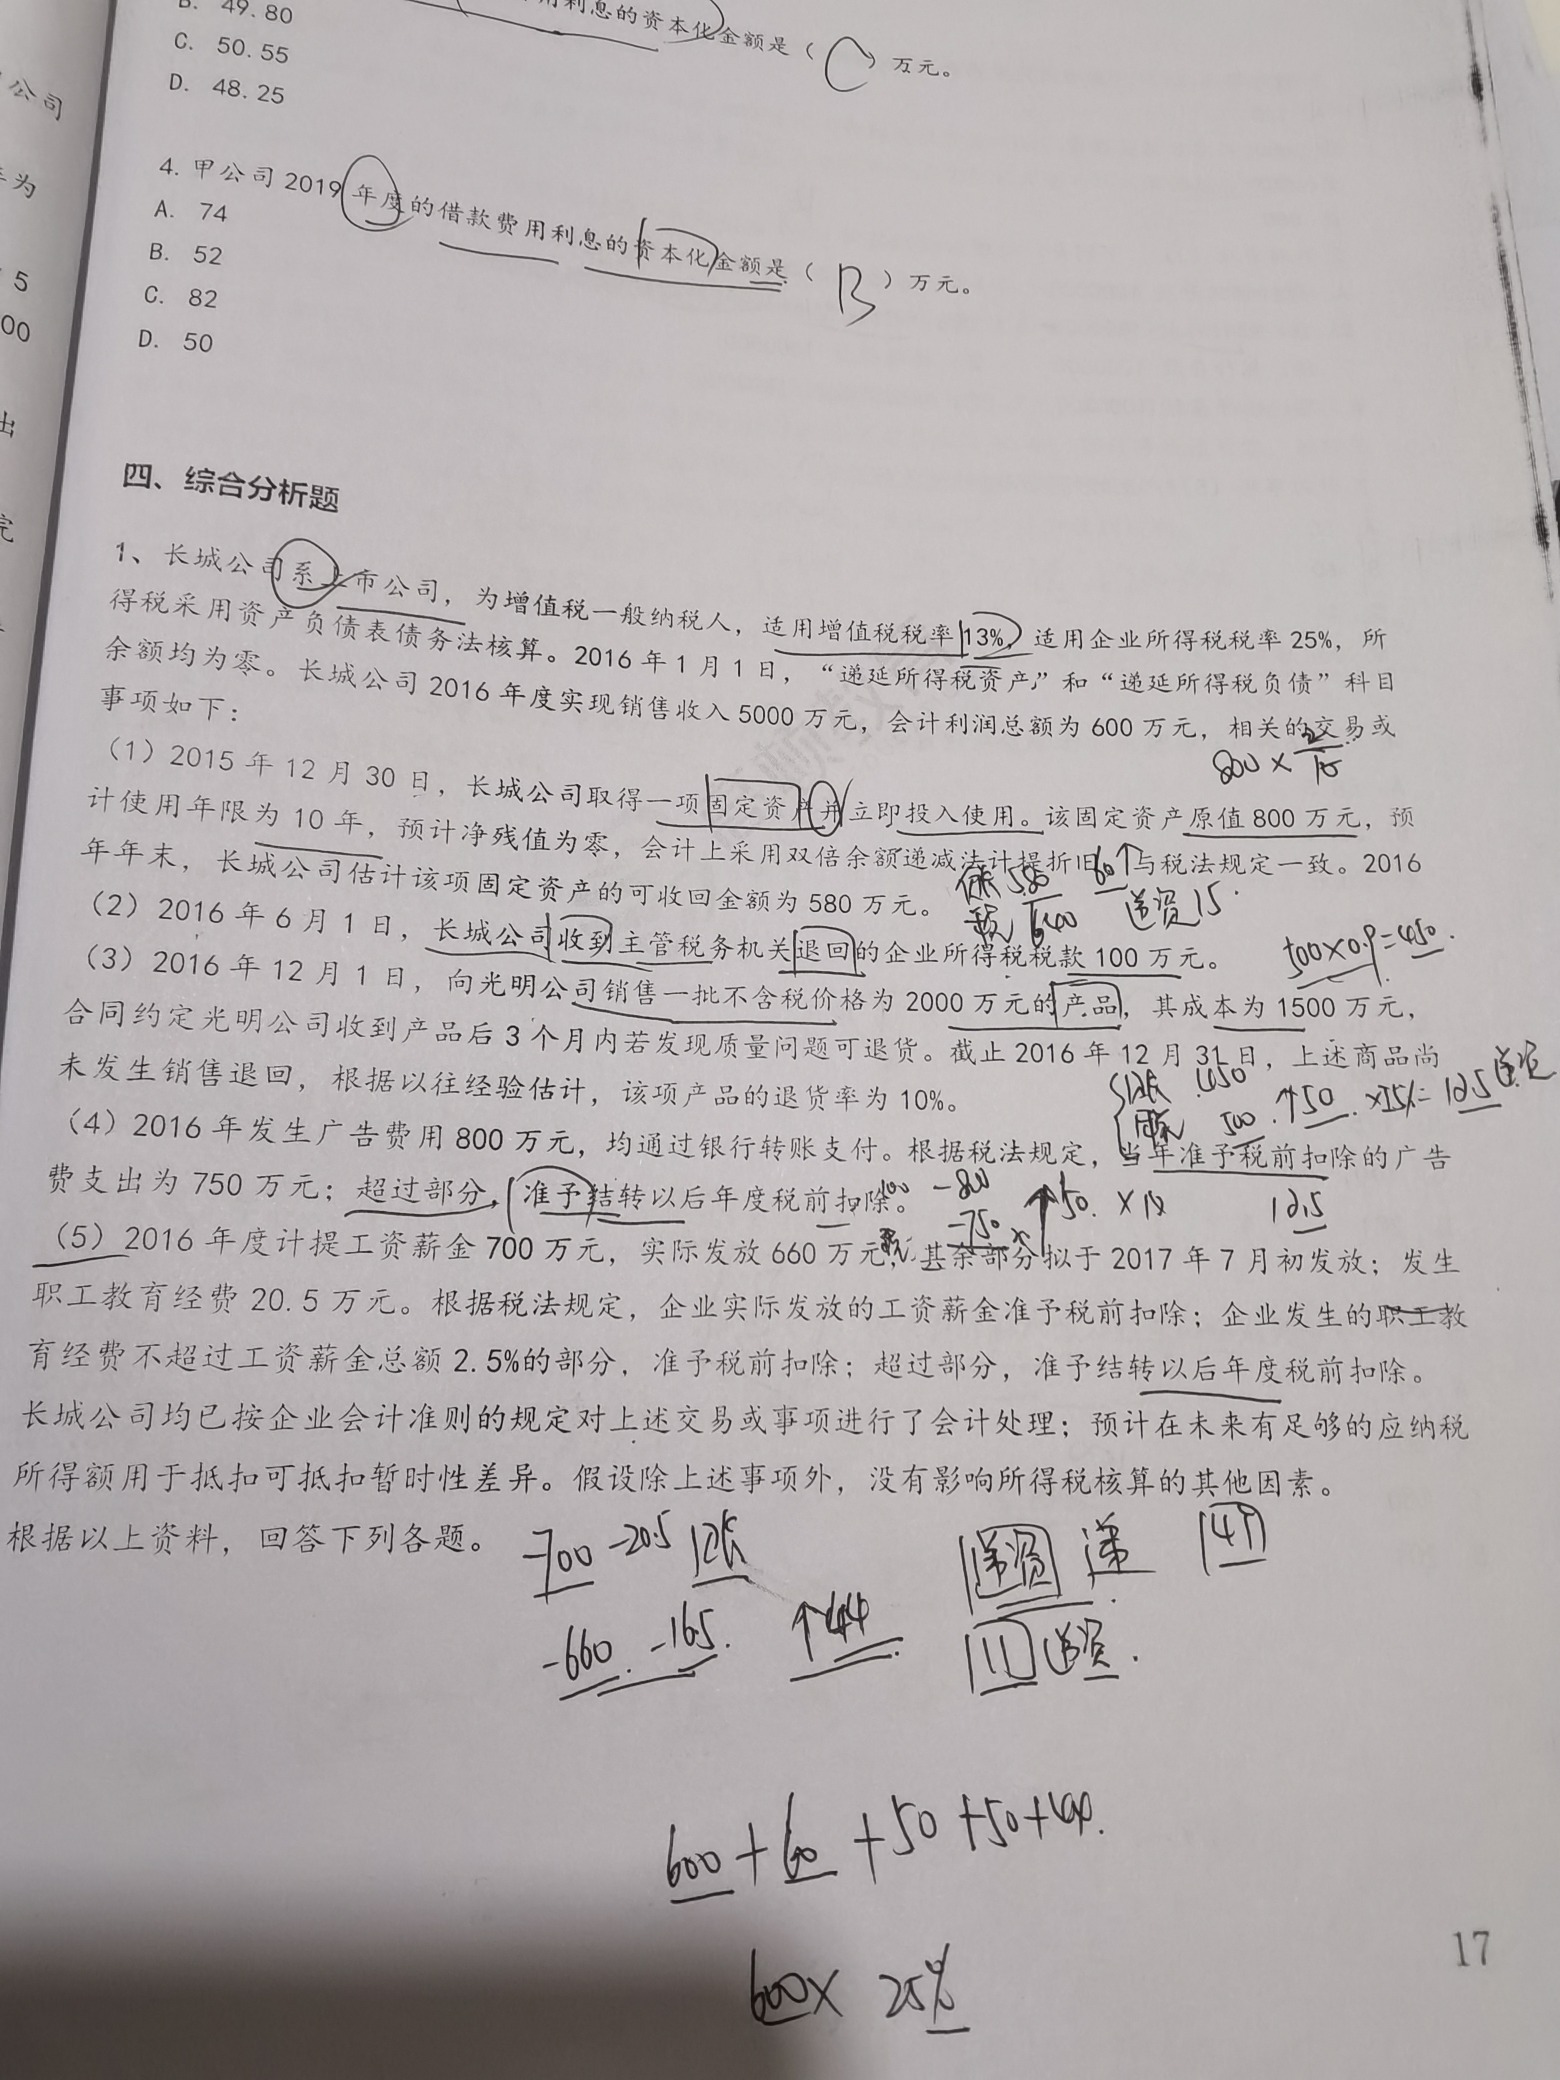 B. 49.80
用利息的资本化金额是（C）万元。
C. 50.55
D. 48.25
4. 甲公司 2019 年度的借款费用利息的资本化金额是（B）万元。
A. 74
B. 52
C. 82
D. 50
公司
为
5
00
出
完
四、综合分析题
1、长城公司系上市公司，为增值税一般纳税人，适用增值税税率 13%，适用企业所得税税率 25%，所
得税采用资产负债表债务法核算。2016 年 1 月 1 日，“递延所得税资产”和“递延所得税负债”科目
余额均为零。长城公司 2016 年度实现销售收入 5000 万元，会计利润总额为 600 万元，相关的交易或
事项如下：
800 × 2/10
（1）2015 年 12 月 30 日，长城公司取得一项固定资产并立即投入使用。该固定资产原值 800 万元，预
计使用年限为 10 年，预计净残值为零，会计上采用双倍余额递减法计提折旧，与税法规定一致。2016
年年末，长城公司估计该项固定资产的可收回金额为 580 万元。
580 60↑
税 640 递资 15
（2）2016 年 6 月 1 日，长城公司收到主管税务机关退回的企业所得税税款 100 万元。
500×0.9=450
（3）2016 年 12 月 1 日，向光明公司销售一批不含税价格为 2000 万元的产品，其成本为 1500 万元，
合同约定光明公司收到产品后 3 个月内若发现质量问题可退货。截止 2016 年 12 月 31 日，上述商品尚
未发生销售退回，根据以往经验估计，该项产品的退货率为 10%。
450
500 ↑50 ×25%= 12.5 递资
（4）2016 年发生广告费用 800 万元，均通过银行转账支付。根据税法规定，当年准予税前扣除的广告
费支出为 750 万元；超过部分，准予结转以后年度税前扣除。
-800
-750 ↑50. 12.5
（5）2016 年度计提工资薪金 700 万元，实际发放 660 万元，其余部分拟于 2017 年 7 月初发放；发生
职工教育经费 20.5 万元。根据税法规定，企业实际发放的工资薪金准予税前扣除；企业发生的职工教
育经费不超过工资薪金总额 2.5%的部分，准予税前扣除；超过部分，准予结转以后年度税前扣除。
长城公司均已按企业会计准则的规定对上述交易或事项进行了会计处理；预计在未来有足够的应纳税
所得额用于抵扣可抵扣暂时性差异。假设除上述事项外，没有影响所得税核算的其他因素。
根据以上资料，回答下列各题。
-700 -20.5 递资 递
-660 -16.5 ↑44 11 递资
600 + 60 + 50 + 50 +
600× 25%
17